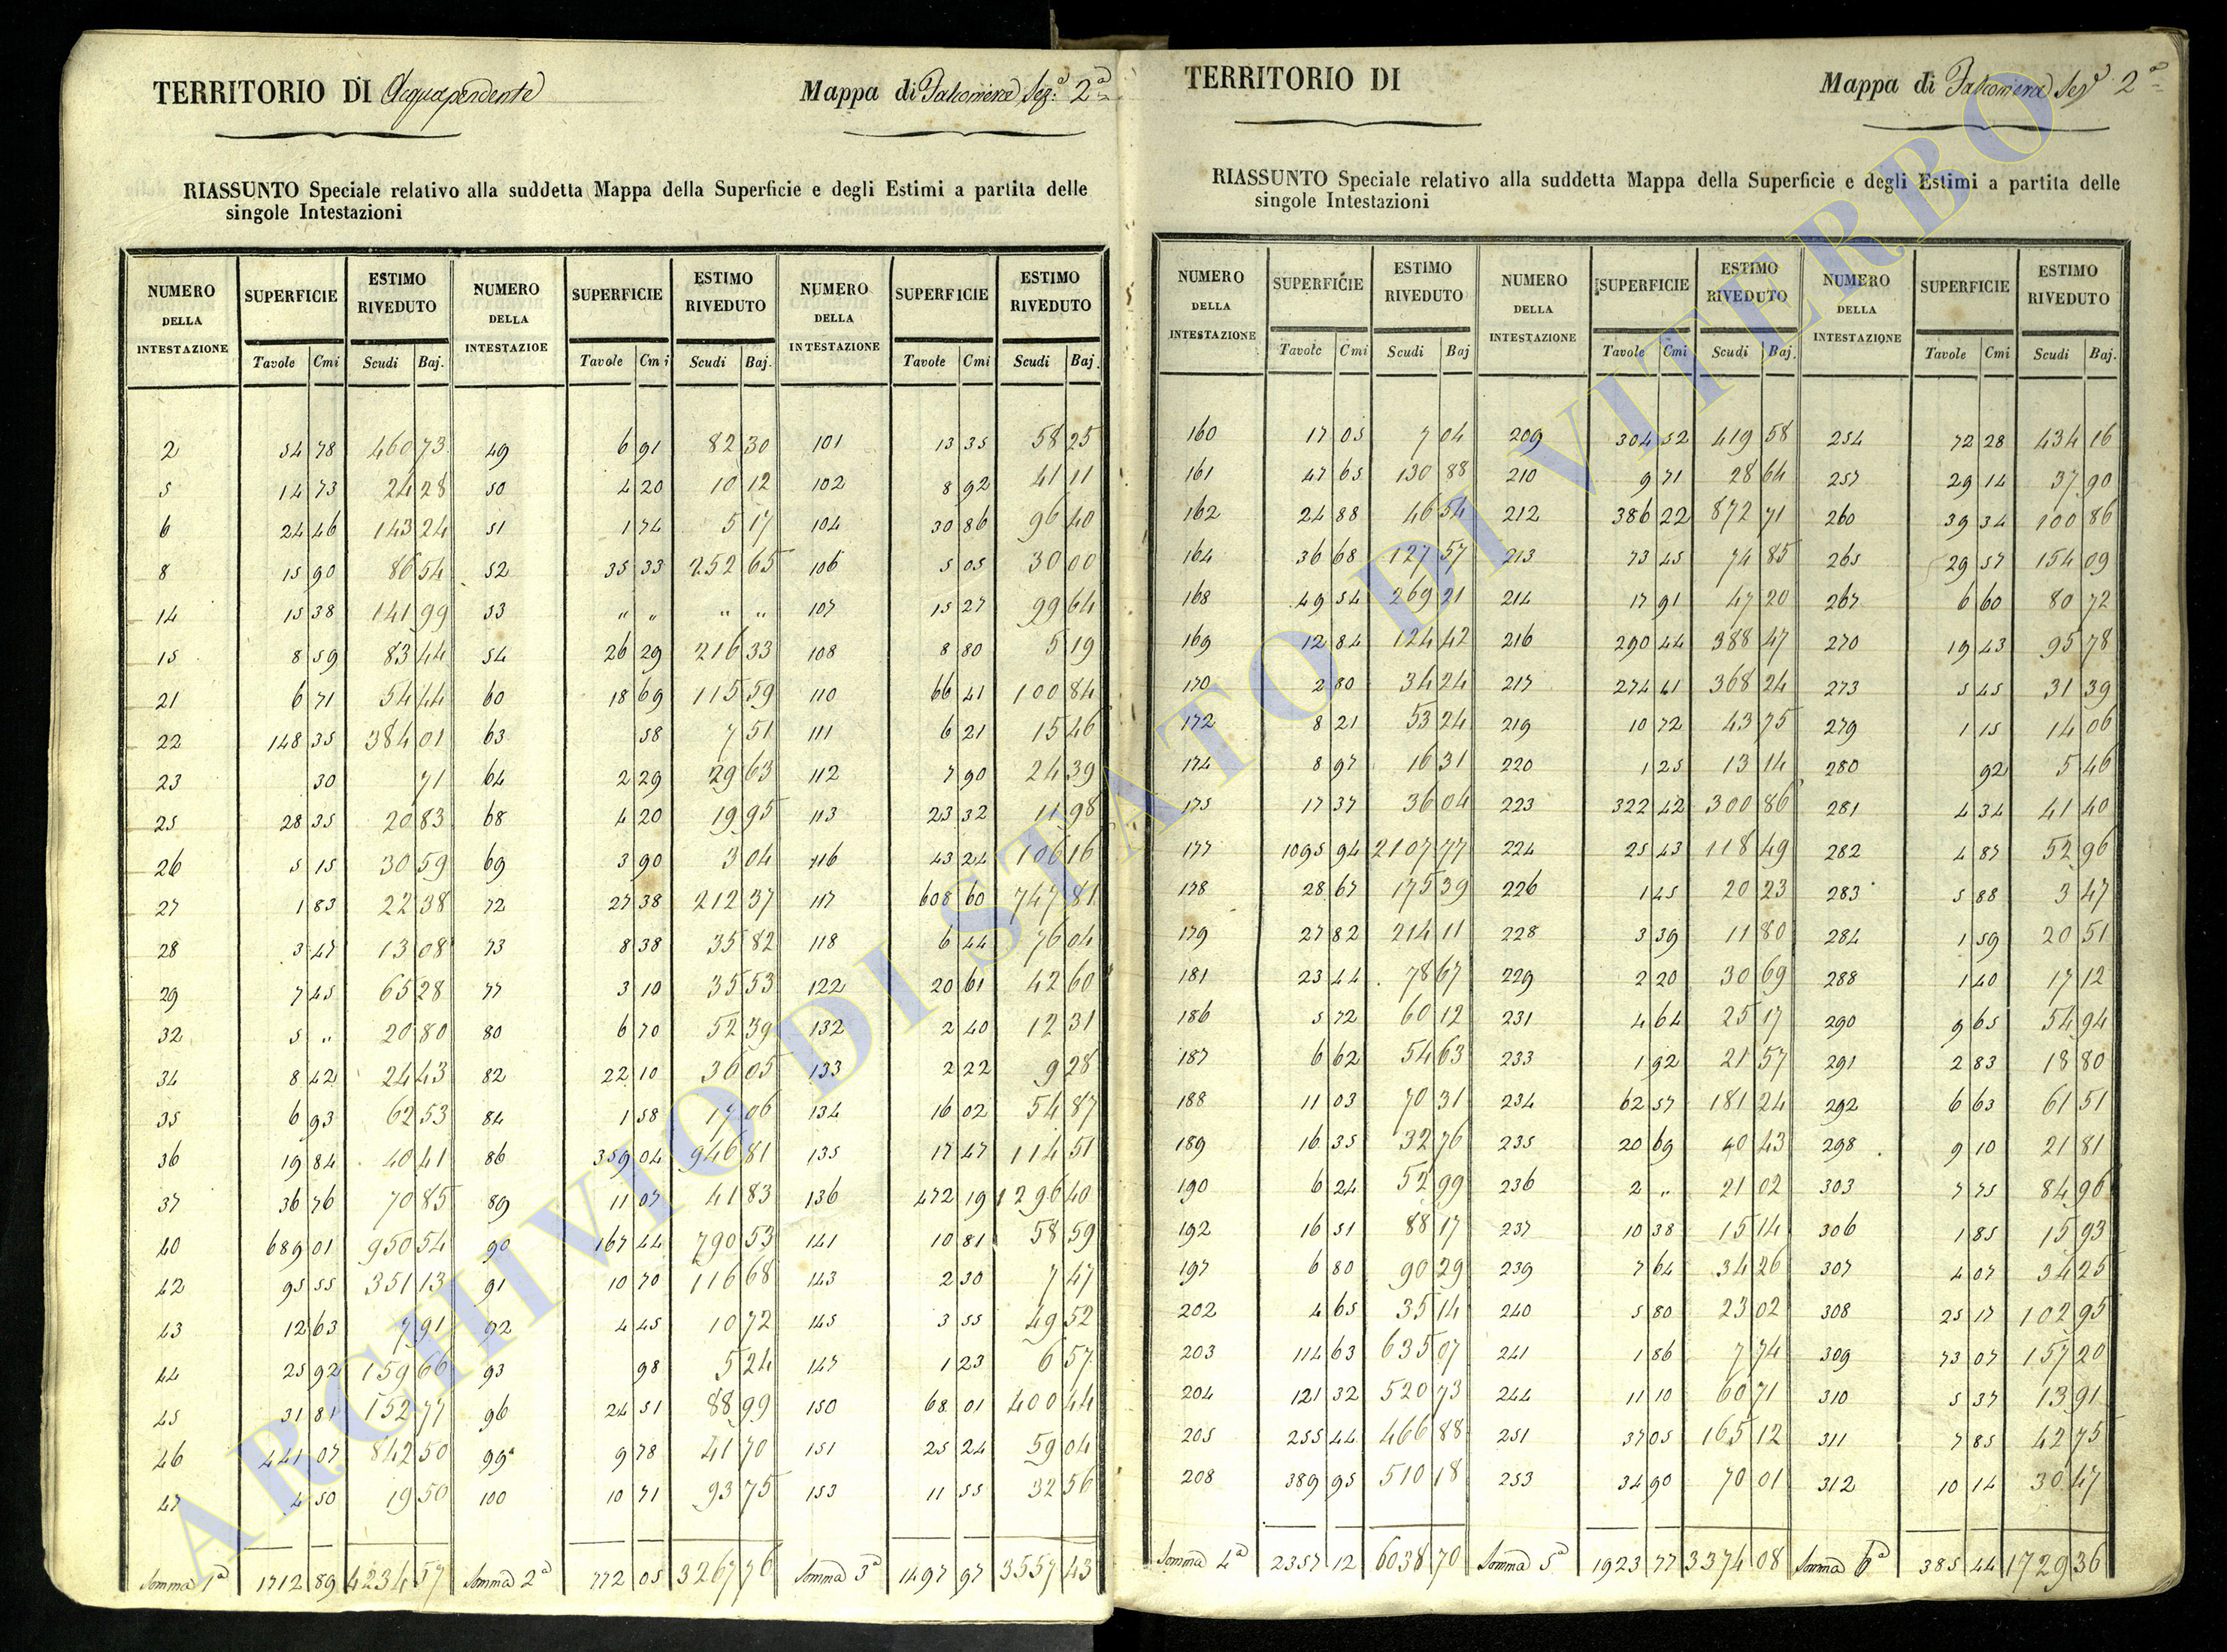 TERRITORIO DI Acquapendente Mappa di Falconiera Sez.ª 2ª
RIASSUNTO Speciale relativo alla suddetta Mappa della Superficie e degli Estimi a partita delle
singole Intestazioni
NUMERO DELLA INTESTAZIONE SUPERFICIE ESTIMO RIVEDUTO NUMERO DELLA INTESTAZIOE SUPERFICIE ESTIMO RIVEDUTO NUMERO DELLA INTESTAZIONE SUPERFICIE ESTIMO RIVEDUTO
Tavole Cmi Scudi Baj. Tavole Cmi Scudi Baj. Tavole Cmi Scudi Baj.
2 54 78 460 73 49 6 91 82 30 101 13 35 58 25
5 14 73 24 28 50 4 20 10 12 102 8 92 41 11
6 24 46 143 24 51 1 74 5 17 104 30 86 96 40
8 15 90 86 54 52 35 33 252 65 106 5 05 30 00
14 15 38 141 99 53 " " " " 107 15 27 99 64
15 8 59 83 44 54 26 29 216 33 108 8 80 5 19
21 6 71 54 44 60 18 69 115 59 110 66 41 100 84
22 148 35 384 01 63 58 7 51 111 6 21 15 46
23 30 71 64 2 29 29 63 112 7 90 24 39
25 28 35 20 83 68 4 20 19 95 113 23 32 11 98
26 5 15 30 59 69 3 90 3 04 116 43 24 106 16
27 1 83 22 38 72 27 38 212 37 117 608 60 747 81
28 3 47 13 08 73 8 38 35 82 118 6 44 76 04
29 7 45 65 28 77 3 10 35 53 122 20 61 42 60
32 5 " 20 80 80 6 70 52 39 132 2 40 12 31
34 8 42 24 43 82 22 10 36 05 133 2 22 9 28
35 6 93 62 53 84 1 58 17 06 134 16 02 54 87
36 19 84 40 41 86 359 04 946 81 135 17 47 114 51
37 36 76 70 85 89 11 07 41 83 136 472 19 1296 40
40 689 01 950 54 90 167 44 790 53 141 10 81 58 59
42 95 55 351 13 91 10 70 116 68 143 2 30 7 47
43 12 63 7 91 92 4 45 10 72 145 3 55 49 52
44 25 92 159 66 93 98 5 24 147 1 23 6 57
45 31 81 152 77 96 24 51 88 99 150 68 01 400 44
46 441 07 842 50 99 9 78 41 70 151 25 24 59 04
47 4 50 19 50 100 10 71 93 75 153 11 55 32 56
Somma 1ª 1712 89 4234 57 Somma 2ª 772 05 3267 76 Somma 3ª 1497 97 3557 43
TERRITORIO DI Mappa di Falconiera Sez.ª 2ª
RIASSUNTO Speciale relativo alla suddetta Mappa della Superficie e degli Estimi a partita delle
singole Intestazioni
NUMERO DELLA INTESTAZIONE SUPERFICIE ESTIMO RIVEDUTO NUMERO DELLA INTESTAZIONE SUPERFICIE ESTIMO RIVEDUTO NUMERO DELLA INTESTAZIONE SUPERFICIE ESTIMO RIVEDUTO
Tavole Cmi Scudi Baj Tavole Cmi Scudi Baj. Tavole Cmi Scudi Baj.
160 17 05 7 04 209 304 52 419 58 254 72 28 434 16
161 47 65 130 88 210 9 71 28 64 257 29 14 37 90
162 24 88 46 54 212 386 22 872 71 260 39 34 100 86
164 36 68 127 57 213 73 45 74 85 265 29 57 154 09
168 49 54 269 21 214 17 91 47 20 267 6 60 80 72
169 12 84 124 42 216 290 44 388 47 270 19 43 95 78
170 2 80 34 24 217 274 41 368 24 273 5 45 31 39
172 8 21 53 24 219 10 72 43 75 279 1 15 14 06
174 8 97 16 31 220 1 25 13 14 280 92 5 46
175 17 37 36 04 223 322 42 300 86 281 4 34 41 40
177 1095 94 2107 77 224 25 43 118 49 282 4 87 52 96
178 28 67 175 39 226 1 45 20 23 283 5 88 3 47
179 27 82 214 11 228 3 39 11 80 284 1 59 20 51
181 23 44 78 67 229 2 20 30 69 288 1 40 17 12
186 5 72 60 12 231 4 64 25 17 290 9 65 54 94
187 6 62 54 63 233 1 92 21 57 291 2 83 18 80
188 11 03 70 31 234 62 57 181 24 292 6 63 61 51
189 16 35 32 76 235 20 69 40 43 298 9 10 21 81
190 6 24 52 99 236 2 " 21 02 303 7 75 84 96
192 16 51 88 17 237 10 38 15 14 306 1 85 15 93
197 6 80 90 29 239 7 64 34 26 307 4 07 34 25
202 4 65 35 14 240 5 80 23 02 308 25 17 102 95
203 114 63 635 07 241 1 86 7 74 309 73 07 157 20
204 121 32 520 73 244 11 10 60 71 310 5 37 13 91
205 255 44 466 88 251 37 05 165 12 311 7 85 42 75
208 389 95 510 18 253 34 90 70 01 312 10 14 30 47
Somma 4ª 2357 12 6038 70 Somma 5ª 1923 77 3374 08 Somma 6ª 385 44 1729 36
ARCHIVIO DI STATO DI VITERBO